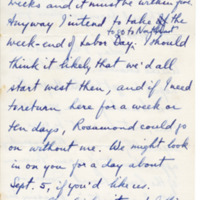 weeks and it must be written for.
Anyway I intend to take off the
to go to Northport
week-end of Labor Day. I should
think it likely that we'd all
start west then, and if I need
to return here for a week or
ten days, Rosamond could go
on without me. We might look
in on you for a day about
Sept. 5, if you'd like us.